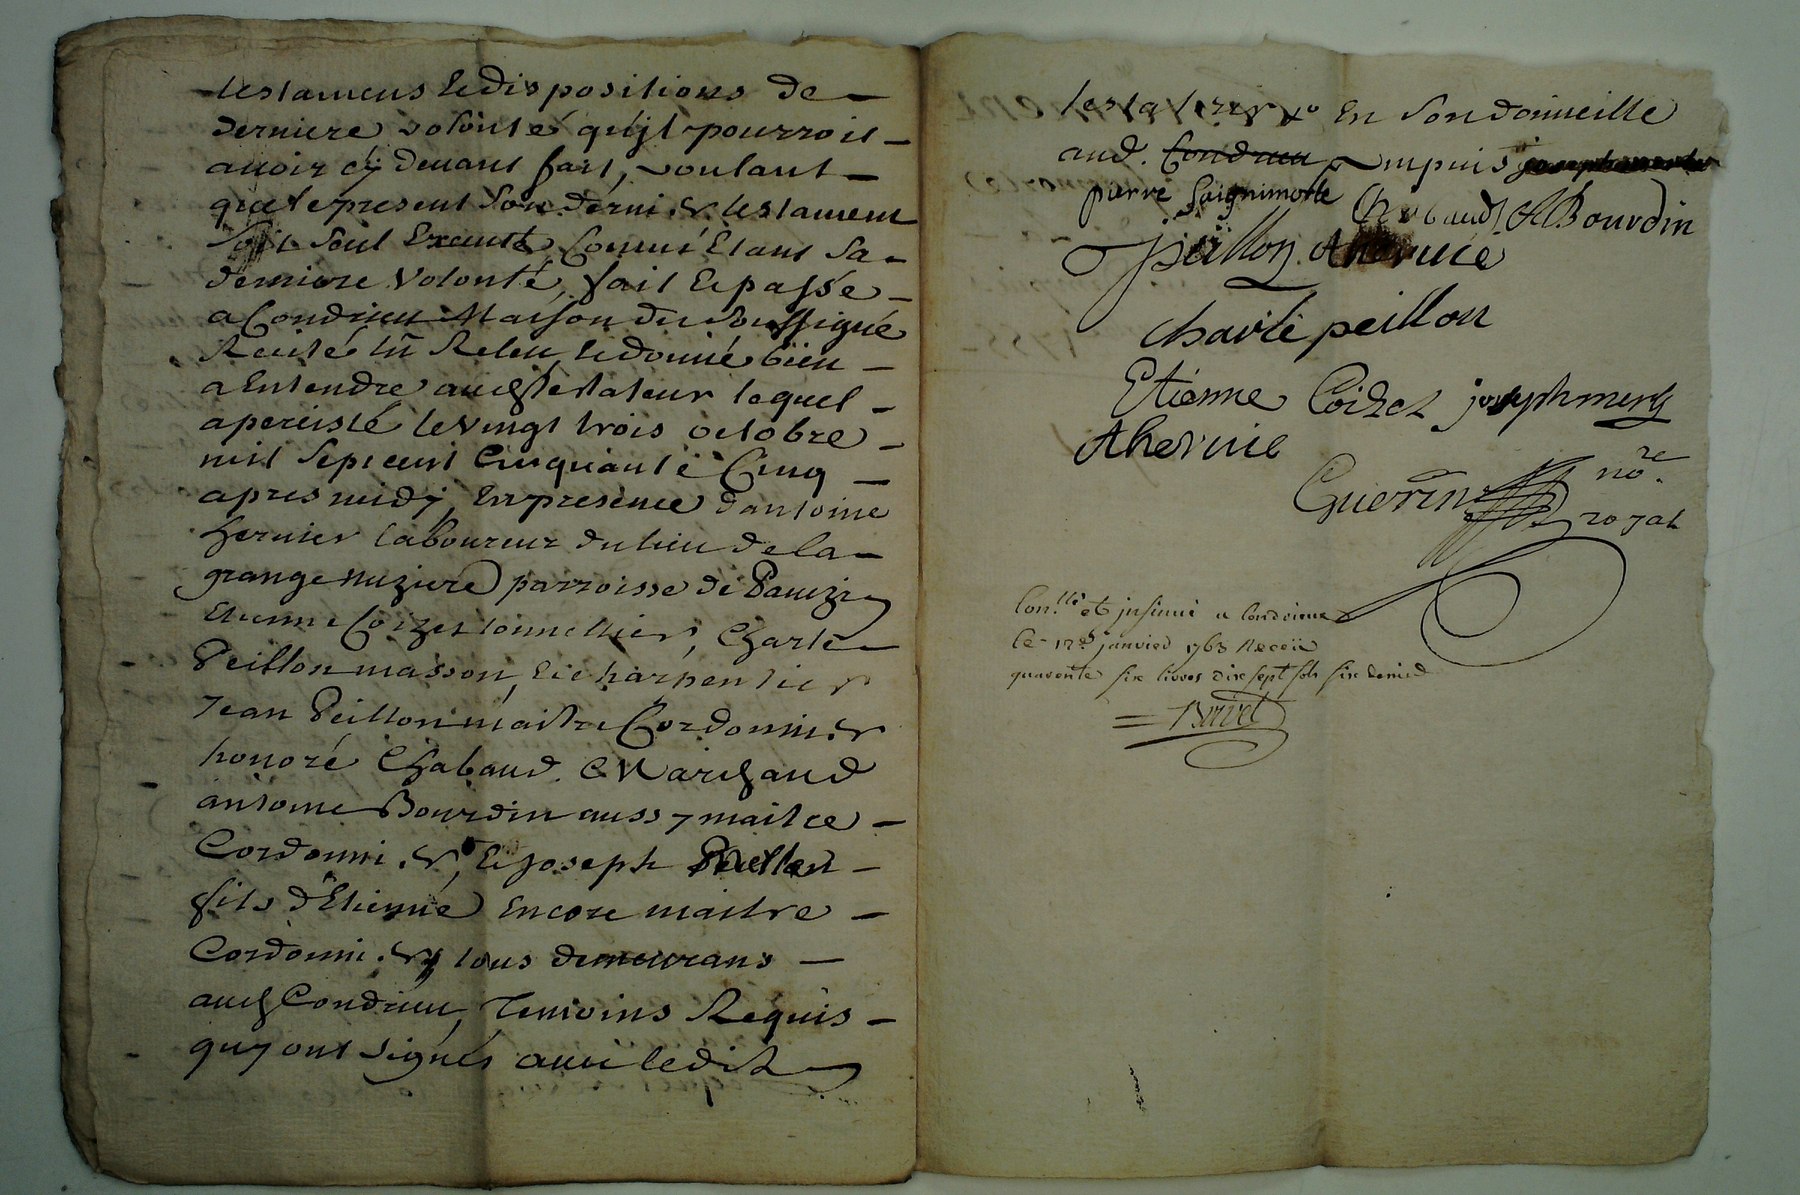 testamens & dispositions de
derniere volonté qu'jl pourroit
avoir cÿ devant fait, voulant
que le present son dernier testament
soit seul Executé Comme Etant sa
derniere volonté, fait & passé
a Condrieu Maison du soussigné
Recité leu Releu & donné bien
a Entendre aud testateur lequel
a percisté le vingt trois octobre
mil sept cent Cinquante Cinq
apres midÿ, En presence d'antoine
hernier laboureur du lieu de la
grange muziere parroisse de
Etienne Coizet tonnellier, Charle
Peillon masson, & charpentier
Jean Peillon maitre Cordonnier
honoré Chabaud Marchand
antoine Bourdin aussy maitre
Cordonnier, & Joseph
fils d'Etienne Encore maitre
Cordonnier tous demeurans
aud Condrieu, Temoins Requis
quy ont signés avec ledit
testateur En son domicille
aud. Condrieu
pierre Saignimorte Chabaud ABourdin
jpeillon
charle peillon
Etienne Coizet joseph
Guerin no.re
royal
Con.llé et jnsinué a Condrieux
le janvier 1763 Receü
quarente six livres dix sept sols six denied